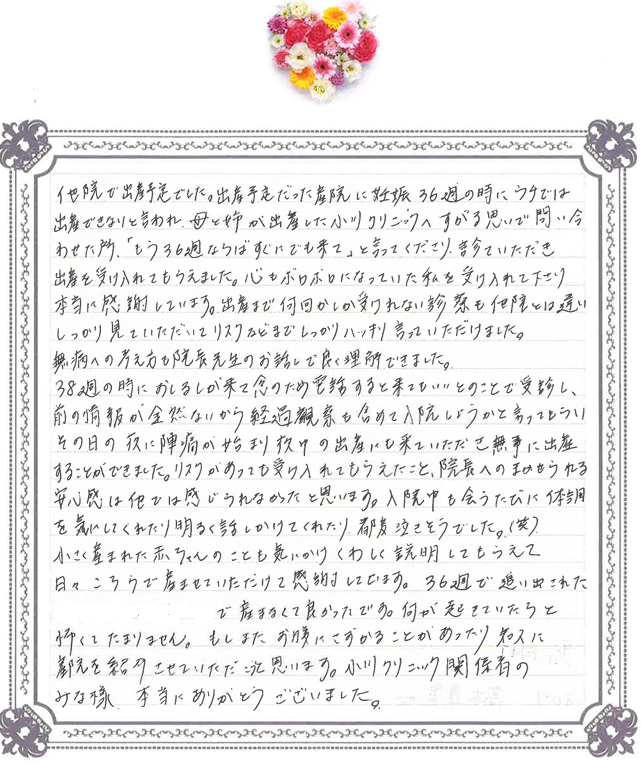 他院で出産予定でした。出産予定だった産院に妊娠36週の時にウチでは
出産できないと言われ、母と姉が出産した小川クリニックへすがる思いで問い合
わせた所、「もう36週ならばすぐにでも来て」と言ってくださり、診ていただき
出産を受け入れてもらえました。心もボロボロになっていた私を受け入れて下さり
本当に感謝しています。出産まで何回かしか受けれない診察も他院とは違い
しっかり見ていただいてリスクなどまでしっかりハッキリ言っていただけました。
無痛への考え方も院長先生のお話しで良く理解できました。
38週の時におしるしが来て念のため電話すると来てもいいとのことで受診し、
前の情報が全然ないから経過観察も含めて入院しようかと言ってもらい
その日の夜に陣痛が始まり夜中の出産にも来ていただき無事に出産
することができました。リスクがあっても受け入れてもらえたこと、院長へのまかせられる
安心感は他では感じられなかったと思います。入院中も会うたびに体調
を気にしてくれたり明るく話しかけてくれたり、都度泣きそうでした。(笑)
小さく産まれた赤ちゃんのことも気にかけくわしく説明してもらえて
日々こちらで産ませていただけて感謝してます。36週で追い出された
で産まなくて良かったです。何が起きていたらと
怖くてたまりません。もしまたお腹にさずかることがあったり知人に
是非を紹介させていただこうと思います。小川クリニック関係者の
みな様、本当にありがとうございました。